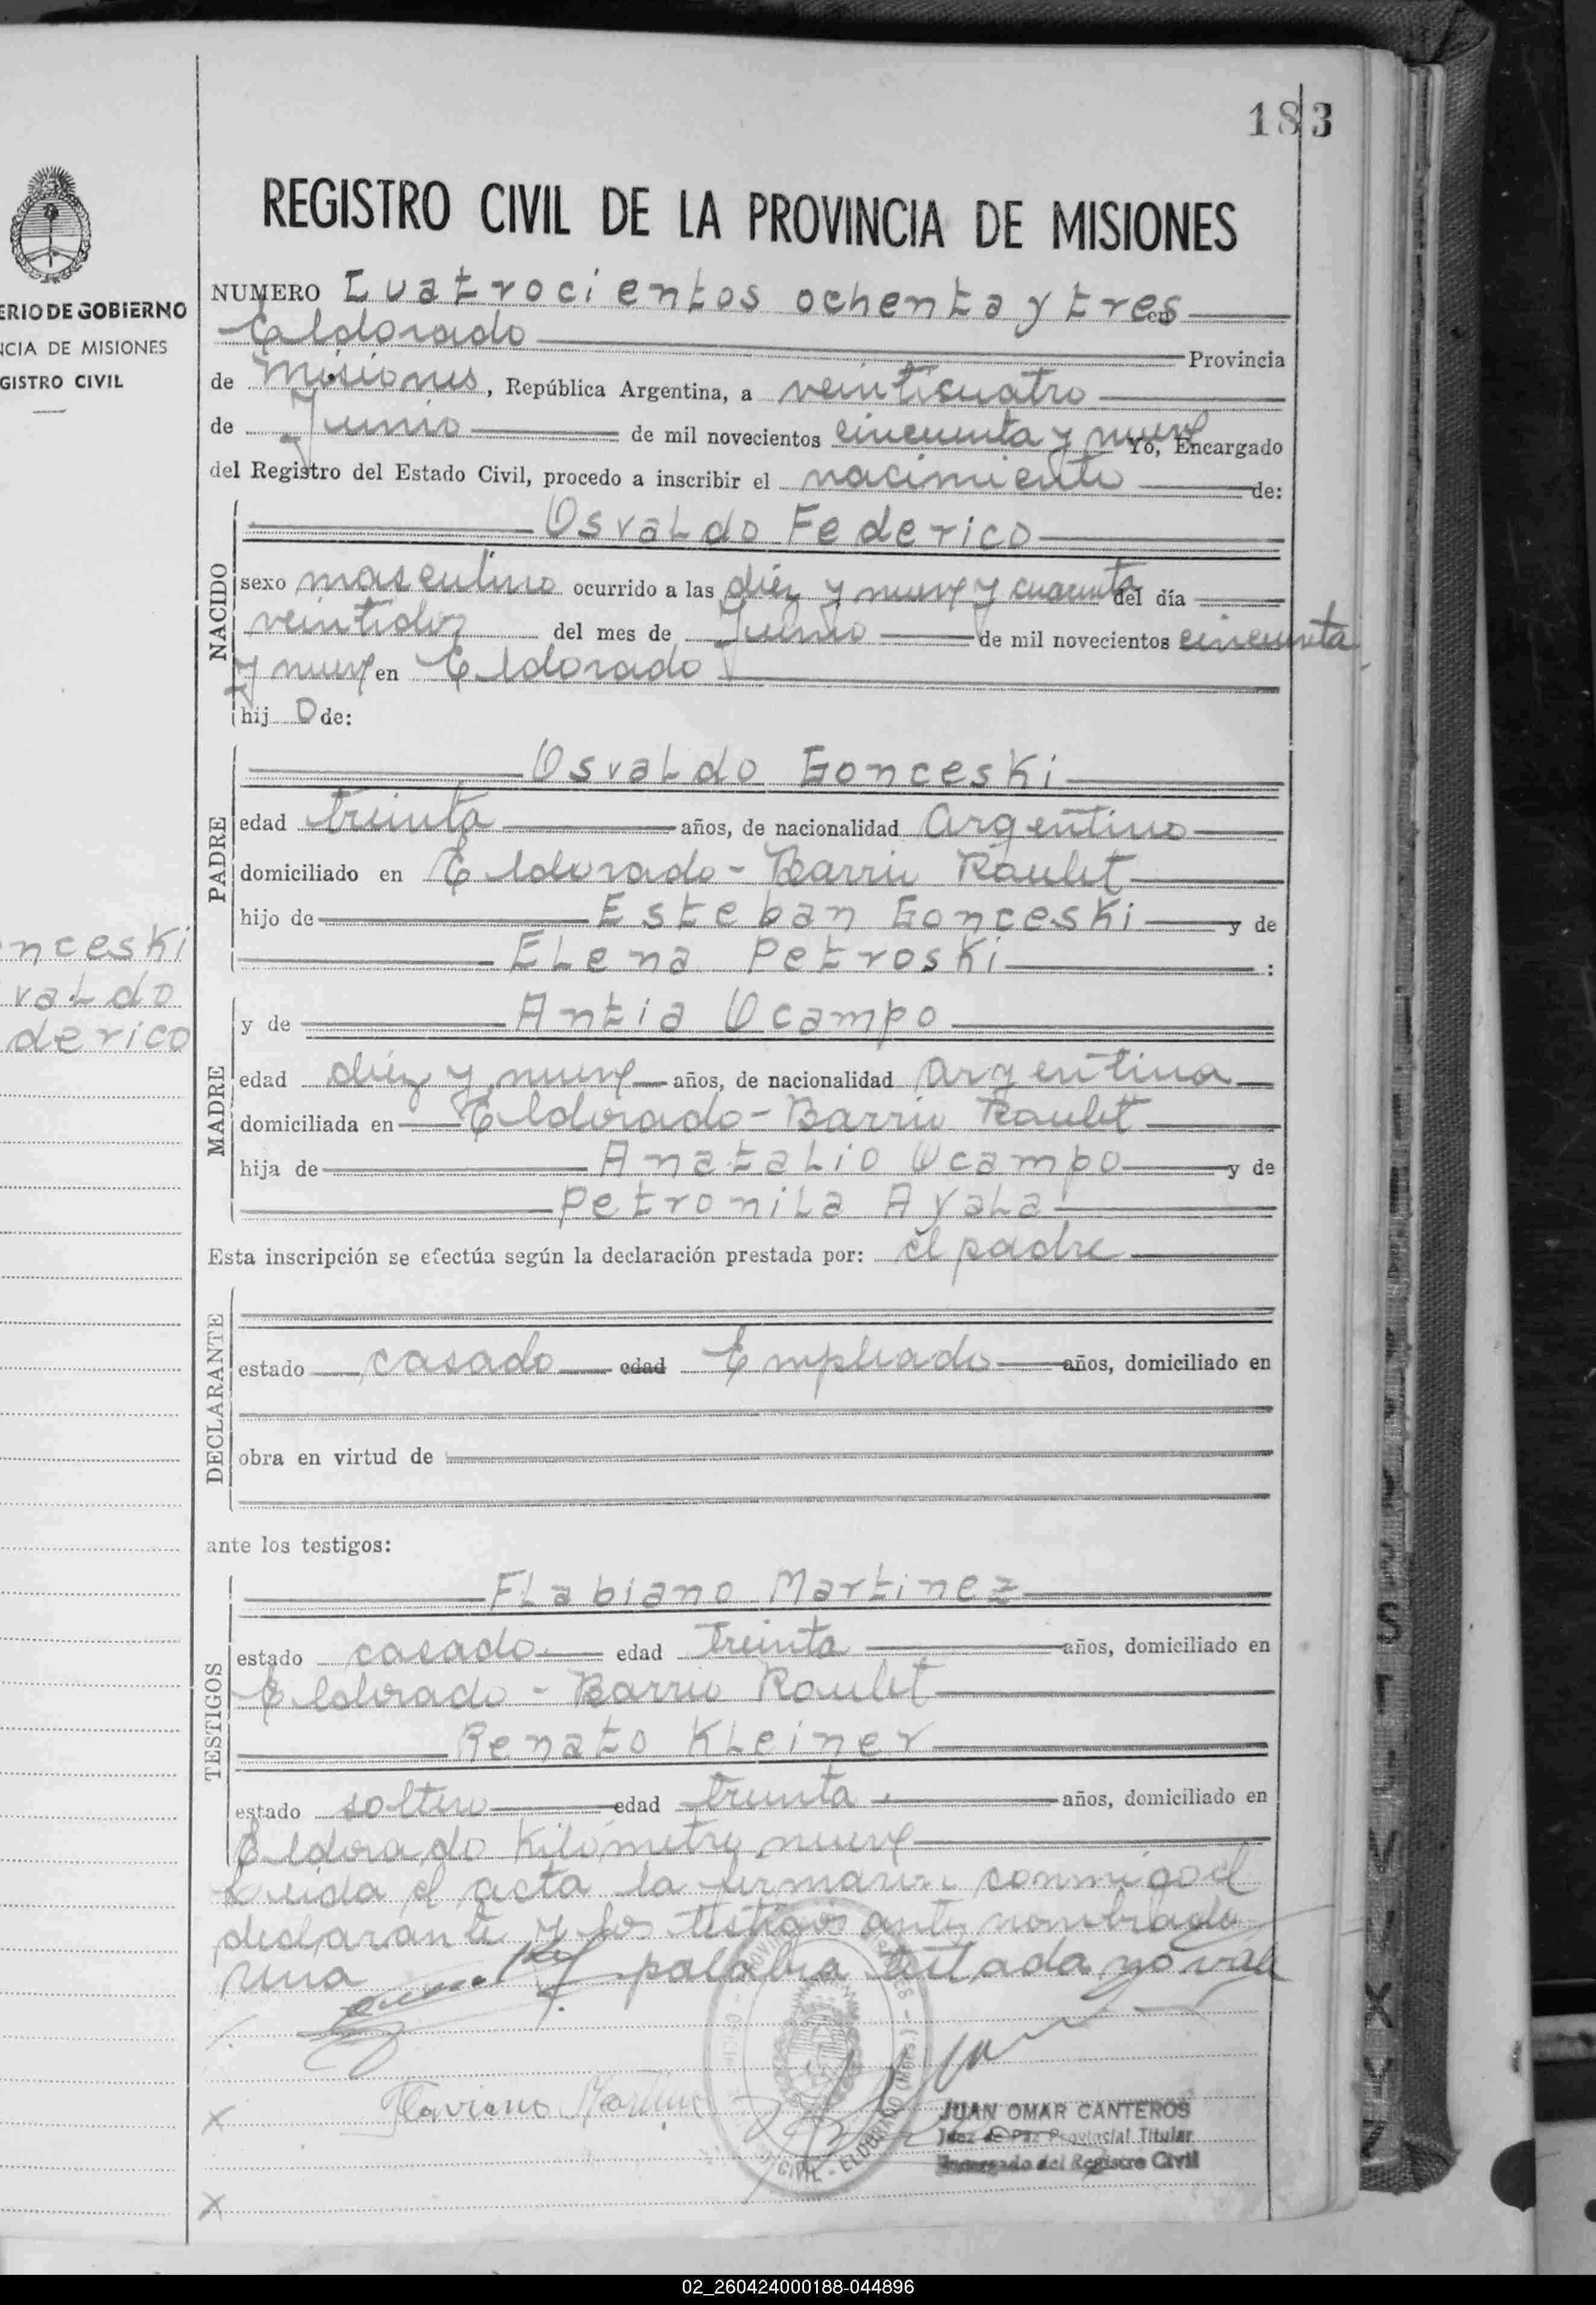 183
ERIO DE GOBIERNO
NCIA DE MISIONES
GISTRO CIVIL
nceski
valdo
derico
REGISTRO CIVIL DE LA PROVINCIA DE MISIONES
NUMERO Cuatrocientos ochenta y tres en
Eldorado Provincia
de Misiones, República Argentina, a veinticuatro
de Junio de mil novecientos cincuenta y nueve Yo, Encargado
del Registro del Estado Civil, procedo a inscribir el nacimiento de:
NACIDO
Osvaldo Federico
sexo masculino ocurrido a las diéz y nueve y cuarenta del día
veintidoz del mes de Junio de mil novecientos cincuenta
y nueve en Eldorado
hij o de:
PADRE
Osvaldo Gonceski
edad treinta años, de nacionalidad Argentino
domiciliado en Eldorado - Barrio Roulet
hijo de Esteban Gonceski y de
Elena Petroski :
MADRE
y de Antia Ocampo
edad diéz y nueve años, de nacionalidad Argentina
domiciliada en Eldorado - Barrio Roulet
hija de Anatalio Ocampo y de
Petronila Ayala
Esta inscripción se efectúa según la declaración prestada por: el padre
DECLARANTE
estado casado edad Empleado años, domiciliado en
obra en virtud de
ante los testigos:
TESTIGOS
Flabiano Martinez
estado casado edad treinta años, domiciliado en
Eldorado - Barrio Roulet
Renato Kleiner
estado soltero edad treinta años, domiciliado en
Eldorado Kilómetro nueve
Leida el acta la firmaron conmigo el
declarante y los testigos antes nombrado
una palabra testada no vale
Flaviano Martinez
CIVIL - ELDORADO (Mnes.)
JUAN OMAR CANTEROS
Juez de Paz Provincial Titular
Encargado del Registro Civil
02_260424000188-044896